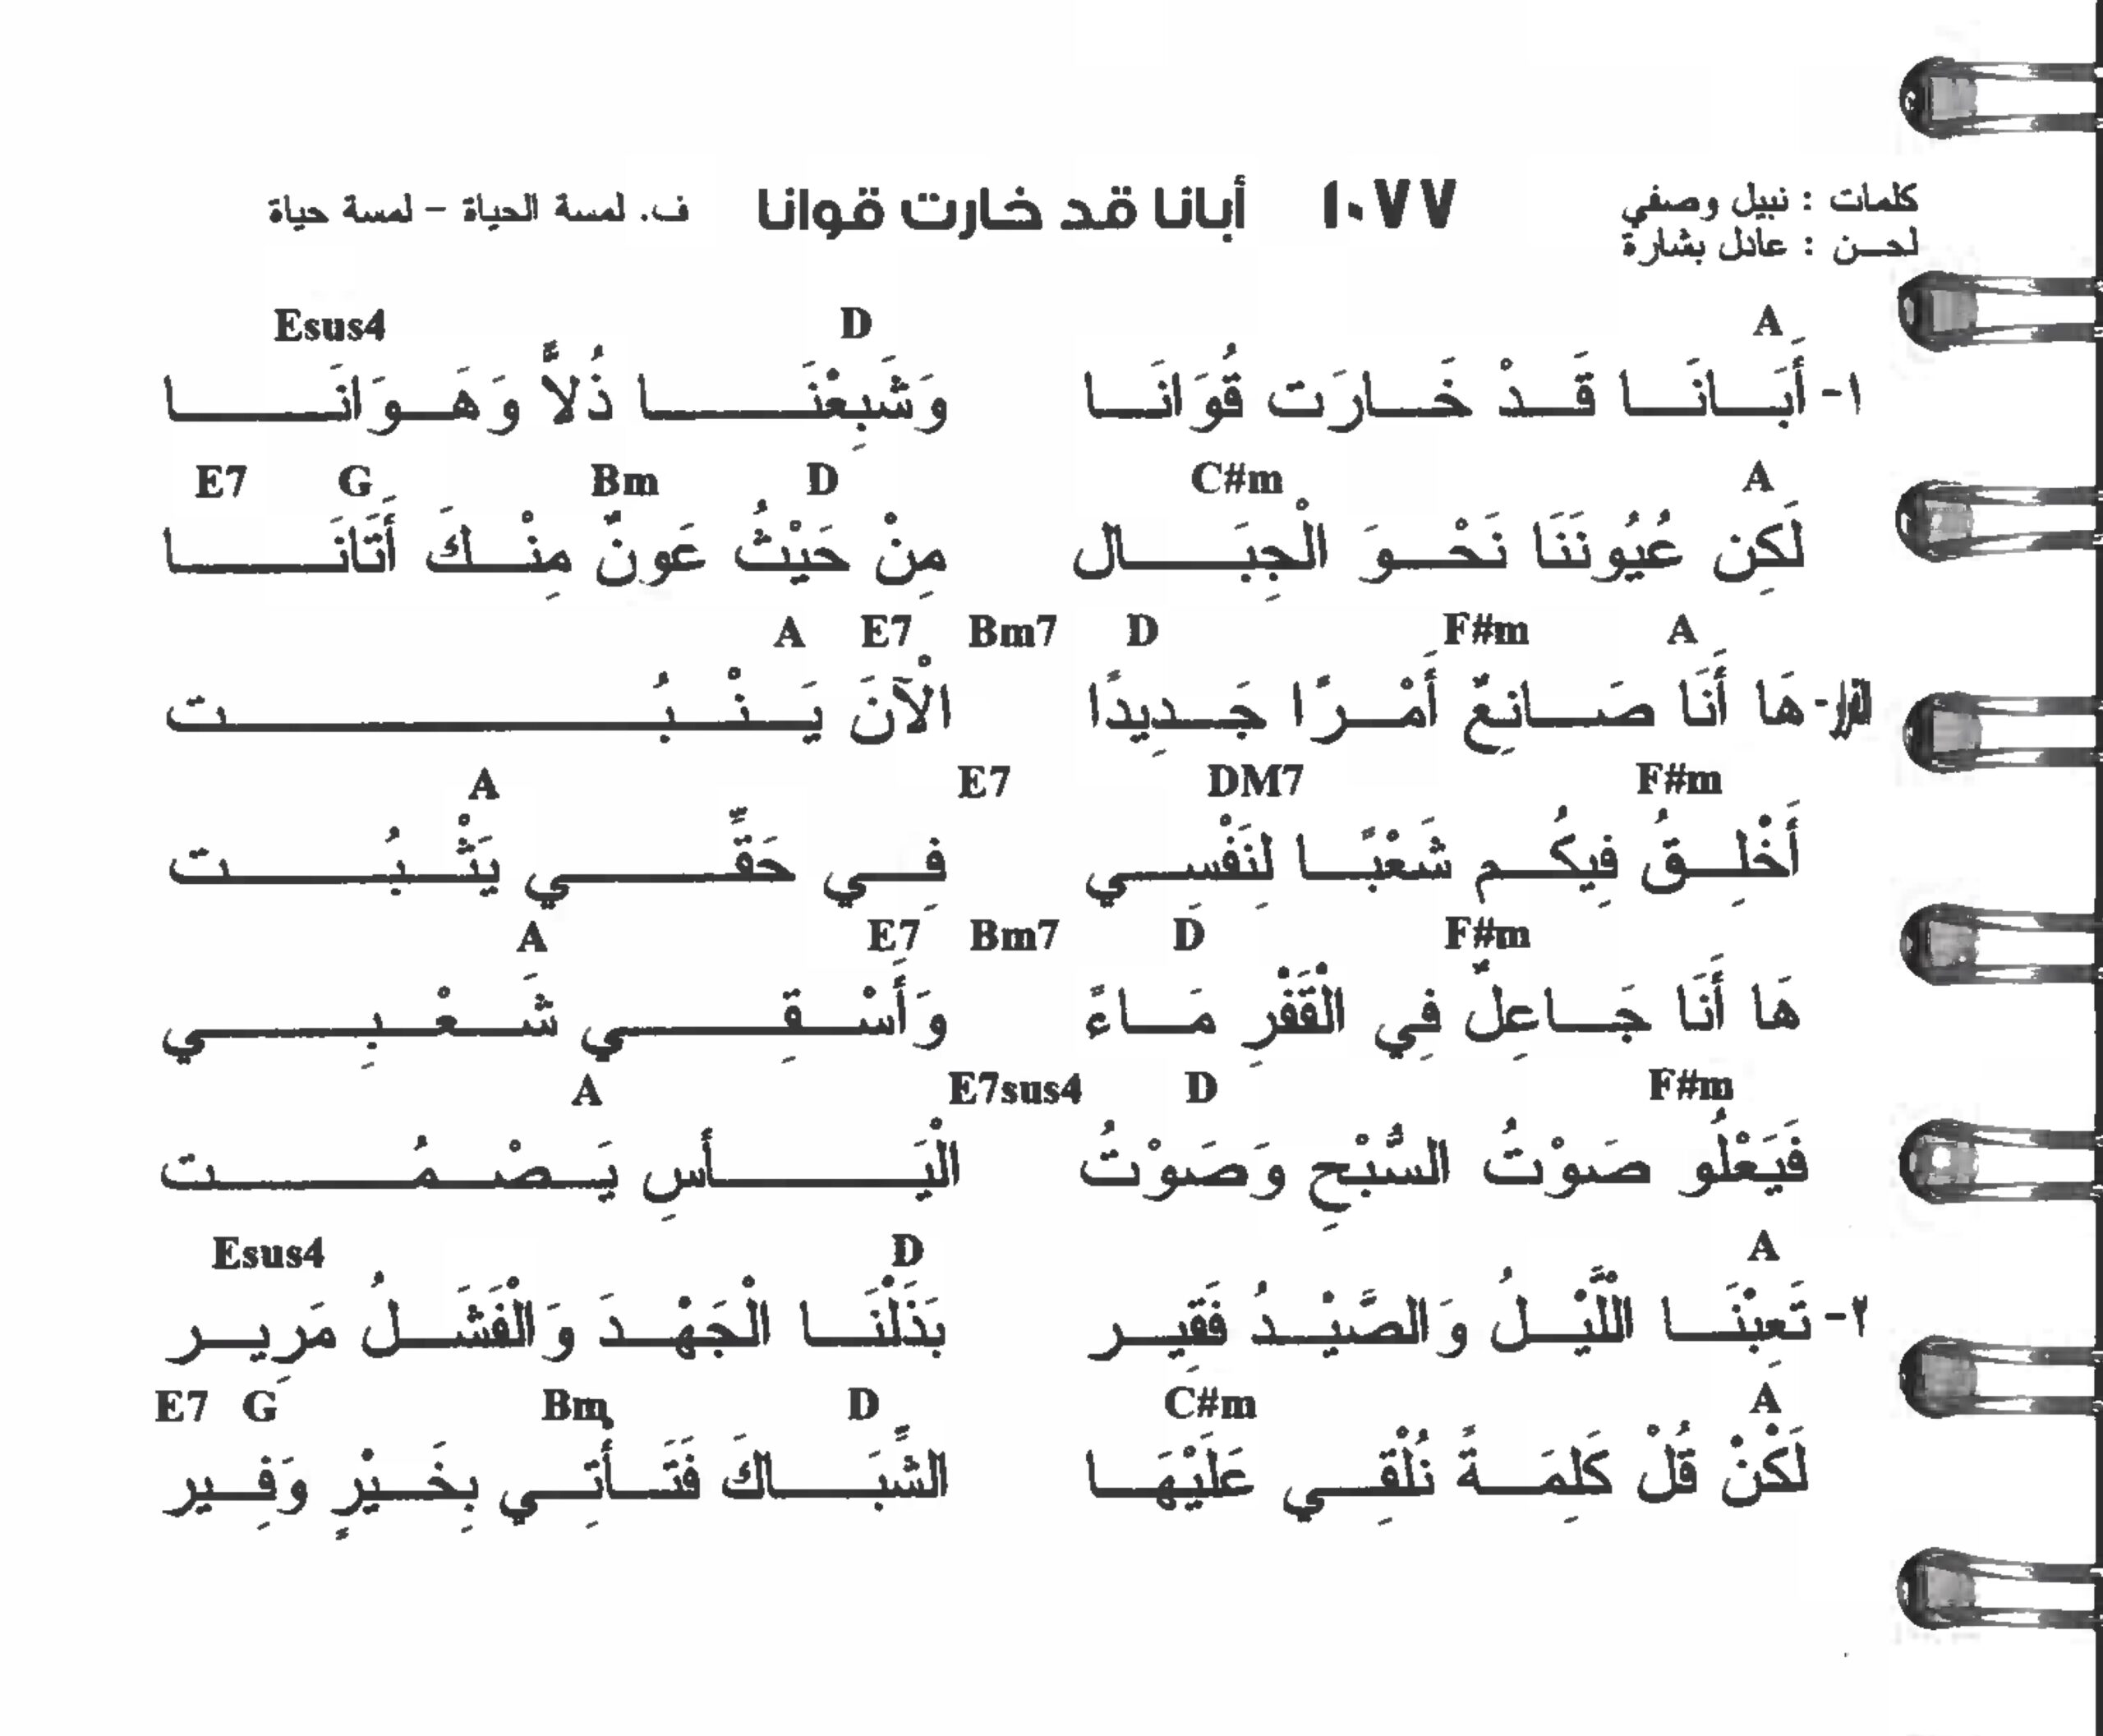 كلمات : نبيل وصفي
لحن : عادل بشارة
١٠٧٧ أبانا قد خارت قوانا ف. لمسة الحياة - لمسة حياة
A D Esus4
١- أَبَانَا قَدْ خَارَت قُوَانَا وَشَبِعْنَا ذُلاًّ وَهَوَانَا
A C#m D Bm G E7
لَكِن عُيُونَنَا نَحْوَ الْجِبَال مِنْ حَيْثُ عَونٌ مِنْكَ أَتَانَا
A F#m D Bm7 E7 A
القرار- هَا أَنَا صَانِعٌ أَمْرًا جَدِيدًا الْآنَ يَنْبُت
F#m DM7 E7 A
أَخْلِقُ فِيكُم شَعْبًا لِنَفْسِي فِي حَقِّي يَثْبُت
F#m D Bm7 E7 A
هَا أَنَا جَاعِلٌ فِي الْقَفْرِ مَاءً وَأَسْقِي شَعْبِي
F#m D E7sus4 A
فَيَعْلُو صَوْتُ السُّبْحِ وَصَوْتُ الْيَأسِ يَصْمُت
A D Esus4
٢- تَعِبْنَا اللَّيْلُ وَالصَّيْدُ فَقِير بَذَلْنَا الْجَهْدَ وَالْفَشَلُ مَرِير
A C#m D Bm G E7
لَكْنْ قُلْ كَلِمَةً نُلْقِي عَلَيْهَا الشِّبَاكَ فَتَأْتِي بِخَيْرٍ وَفِير